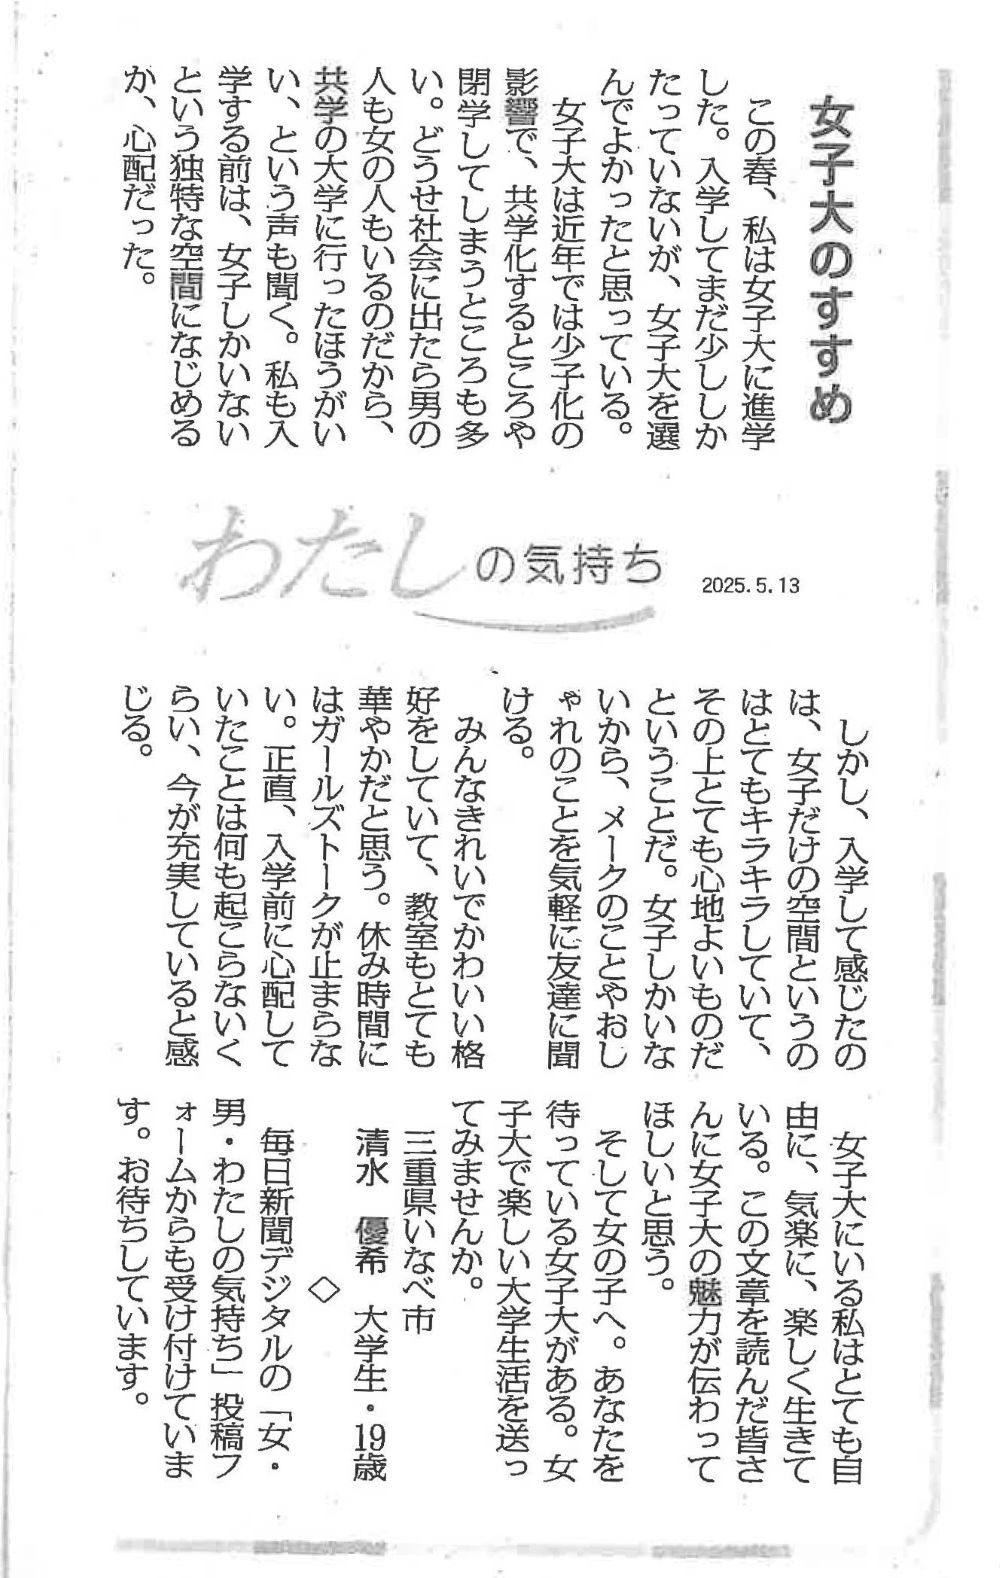 女子大のすすめ
この春、私は女子大に進学
した。入学してまだ少ししか
たっていないが、女子大を選
んでよかったと思っている。
女子大は近年では少子化の
影響で、共学化するところや
閉学してしまうところも多
い。どうせ社会に出たら男の
人も女の人もいるのだから、
共学の大学に行ったほうがい
い、という声も聞く。私も入
学する前は、女子しかいない
という独特な空間になじめる
か、心配だった。
わたしの気持ち
2025.5.13
しかし、入学して感じたの
は、女子だけの空間というの
はとてもキラキラしていて、
その上とても心地よいものだ
ということだ。女子しかいな
いから、メークのことやおし
ゃれのことを気軽に友達に聞
ける。
みんなきれいでかわいい格
好をしていて、教室もとても
華やかだと思う。休み時間に
はガールズトークが止まらな
い。正直、入学前に心配して
いたことは何も起こらないく
らい、今が充実していると感
じる。
女子大にいる私はとても自
由に、気楽に、楽しく生きて
いる。この文章を読んだ皆さ
んに女子大の魅力が伝わって
ほしいと思う。
そして女の子へ。あなたを
待っている女子大がある。女
子大で楽しい大学生活を送っ
てみませんか。
三重県いなべ市
清水　優希　大学生・19歳
◇
毎日新聞デジタルの「女・
男・わたしの気持ち」投稿フ
ォームからも受け付けていま
す。お待ちしています。